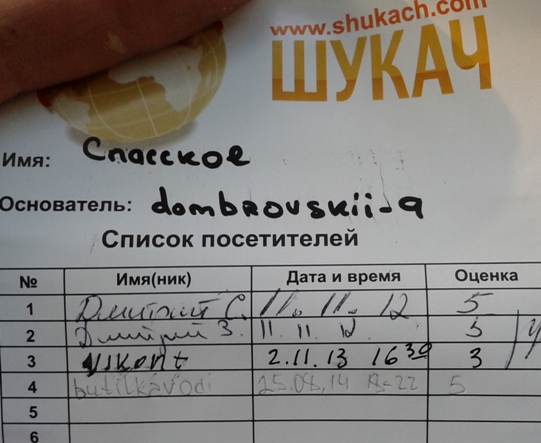 www.shukach.com
ШУКАЧ
Имя: Спасское
Основатель: dombrovskii-a
Список посетителей
№ Имя(ник) Дата и время Оценка
1 Дмитрий С. 11. 11. 12 5
2 Дмитрий З. 11. 11. 12 5
3 Vikont 2.11.13 16 30 3
4 butilkavodi 25.08.14 5
5
6